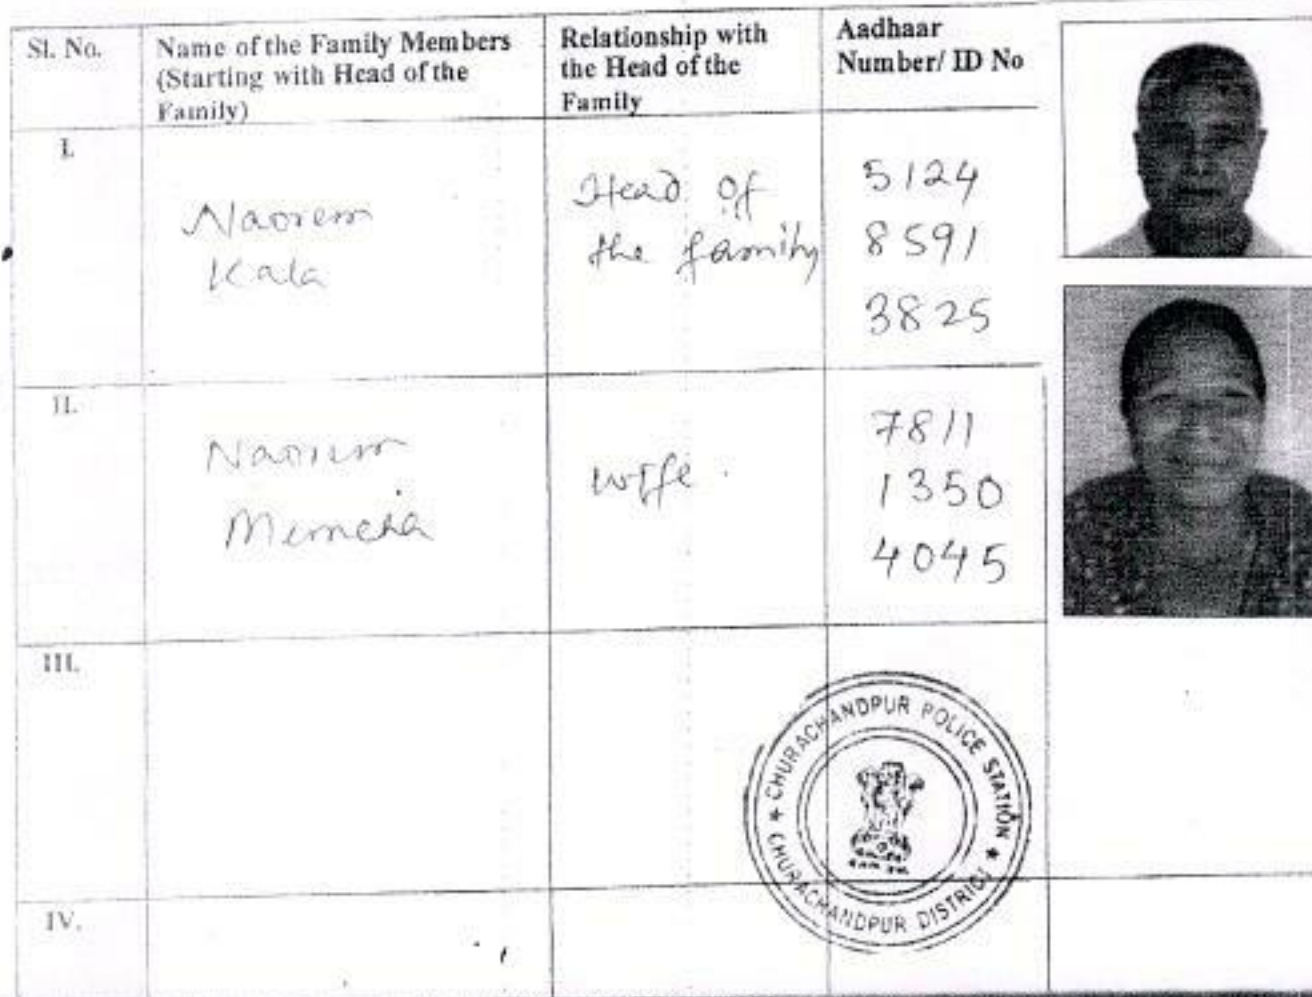 Sl. No.
Name of the Family Members
(Starting with Head of the
Family)
Relationship with
the Head of the
Family
Aadhaar
Number/ ID No
I.
Naorem
Kala
Head of
the family
5124
8591
3825
II.
Naorem
wife.
7811
1350
4045
III.
★ CHURACHANDPUR POLICE STATION ★
CHURACHANDPUR DISTRICT
IV.